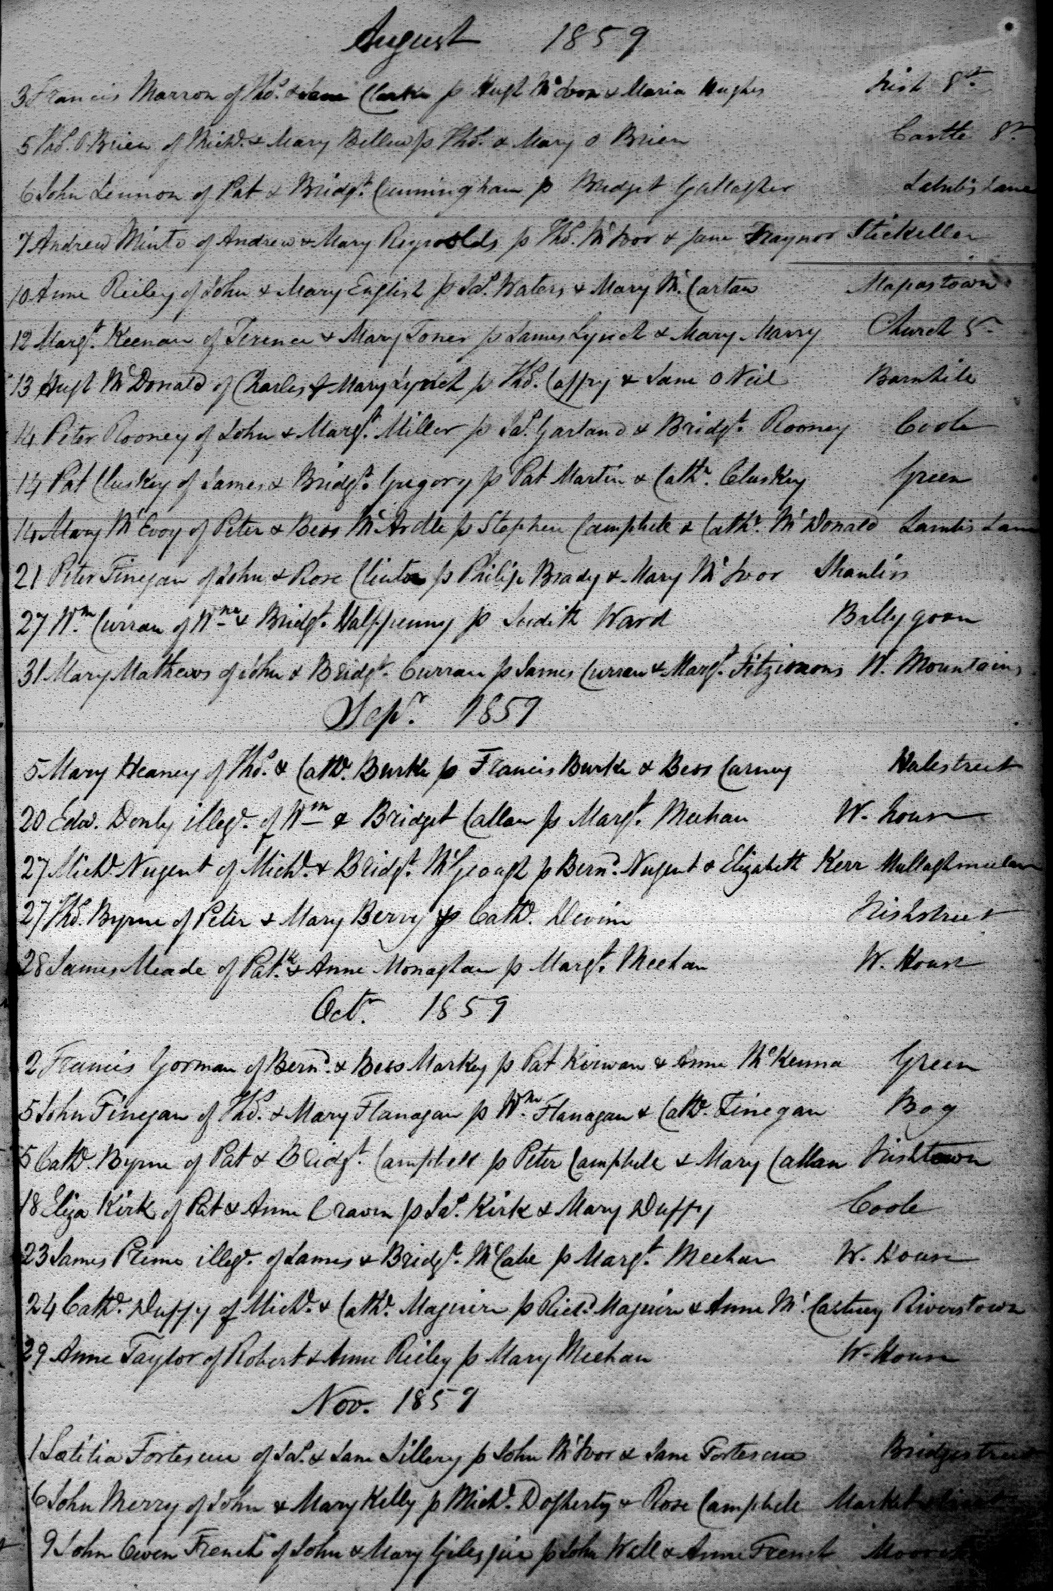 August 1859
3 Francis Marron of Thos. & Jane Clarke p Hugh McIvor & Maria Hughes Irish St
5 Thos. O Brien of Richd. & Mary Bellew p Thos. & Mary O Brien Castle St
6 John Lennon of Pat & Bridgt. Cunningham p Bridget Gallagher Lane
7 Andrew Minto of Andrew & Mary Reynolds p Thos. McIvor & Jane Traynor Stickillen
10 Anne Reiley of John & Mary English p Jas. Waters & Mary McCartan Mapastown
12 Margt. Keenan of Terence & Mary Jones p James Lynch & Mary Marry Church St
13 Hugh McDonald of Charles & Mary Lynch p Thos. Caffry & Jane O Neil Barnhile
14 Peter Rooney of John & Margt. Miller p Jas. Garland & Bridgt. Rooney Coole
14 Pat Cluskey of James & Bridgt. Gregory p Pat Martin & Cathn. Cluskey Green
14 Mary McEvoy of Peter & Bess McArdle p Stephen Campbell & Cathe. McDonald Lambs Lane
21 Peter Finegan of John & Rose Clinton p Philip Brady & Mary McIvor Shanlis
27 Wm. Curran of Wm. & Bridgt. Halfpenny p Judith Ward Ballygoan
31 Mary Mathews of John & Bridgt. Curran p James Curran & Margt. Fitzimons N. Mountains
Sepr. 1859
5 Mary Heaney of Thos. & Cathe. Burke p Francis Burke & Bess Carney Halestreet
20 Edwd. Denly illegt. of Wm & Bridget Callan p Margt. Meehan W. House
27 Michl. Nugent of Michl. & Bridgt. McGeough p Bernd. Nugent & Elizabeth Kerr
27 Thos. Byrne of Peter & Mary p Cathe. Devine Irishstreet
28 James Meade of Patk. & Anne Monaghan p Margt. Meehan W. House
Octr. 1859
2 Francis Gorman of Bernd. & Bess Markey p Pat Kirwan & Anne McKenna Green
5 John Finegan of Thos. & Mary Flanagan p Wm Flanagan & Cathe. Finegan Bog
5 Cathe. Byrne of Pat & Bridgt. Campbell p Peter Campbell & Mary Callan Irishtown
18 Eliza Kirk of Pat & Anne Craven p Jas. Kirk & Mary Duffy Coole
23 James illegt. of James & Bridgt. McCabe p Margt. Meehan W. House
24 Cathe. Duffy of Michl. & Cathe. Maguire p Richd. Maguire & Anne McCartney Riverstown
29 Anne Taylor of Robert & Anne Reiley p Mary Meehan W. House
Nov. 1859
1 Lætitia Fortescue of Jas. & Jane Sillery p John McIvor & Jane Fortescue Bridgestreet
6 John Merry of John & Mary Kelly p Michl. Dogherty & Rose Campbell Market
9 John Owen French of John & Mary Gilespie p John Wall & Anne French